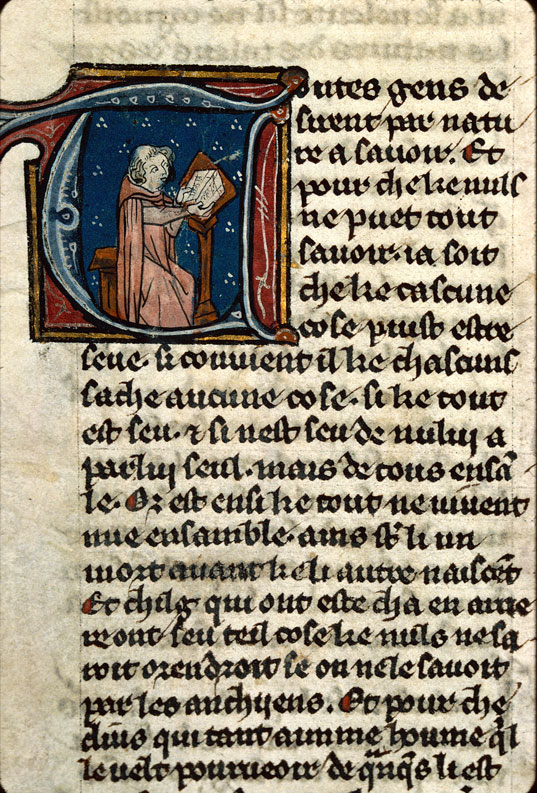 Toutes gens de
sirent par natu
re a savoir. Et
pour che ke nuls
ne puet tout
savoir. ia soit
che ke cascune
cose puist estre
seue. si convient il ke chascuns
sache aucune cose. si ke tout
est seu. ⁊ si n'est seu de nului a
par lui seul. mais de tous ensā
le. Or est ensi ke tout ne vivent
mie ensamble. ains st̄ li un
mort avant ke li autre naiscēt
Et chilz qui ont este cha en arrie
re ont seu teil cose ke nuls ne sa
roit orendroit se on ne le savoit
par les anchijens. Et pour che
dius qui tant aimme houme q̄l
le velt pourveoir de q̄nq̄s li est